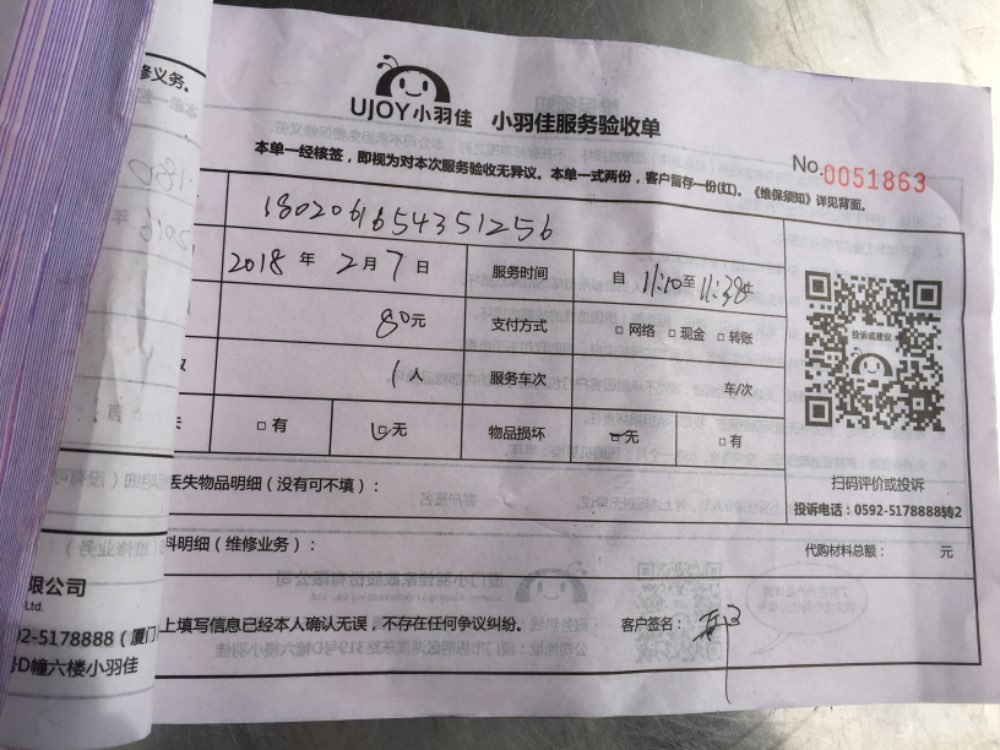 修义务。
UJOY小羽佳 小羽佳服务验收单
本单一经核签，即视为对本次服务验收无异议。本单一式两份，客户留存一份(红)。《维保须知》详见背面。
No.0051863
1802061654351256
2018 年 2月7日 服务时间 自 11:10至11:38止
80元 支付方式 □ 网络 □ 现金 □ 转账
1人 服务车次 车/次
□ 有 □无 物品损坏 □无 □ 有
投诉或建议
扫码评价或投诉
投诉电话：0592-5178888转2
丢失物品明细（没有可不填）：
料明细（维修业务）：
代购材料总额： 元
上填写信息已经本人确认无误，不存在任何争议纠纷。 客户签名：
限公司
Ltd.
92-5178888（厦门
号D幢六楼小羽佳